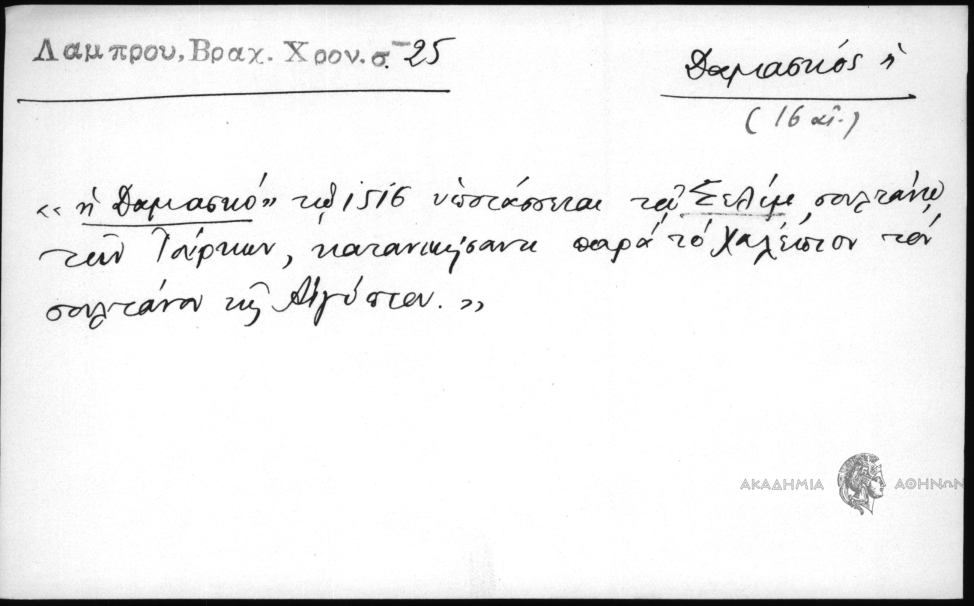 Λαμπρου, Βραχ. Χρον. σ. 25
Δαμασκός ἡ
(16 αἰ.)
«ἡ Δαμασκό» τῷ 1516 ὑποτάσσεται τῷ Σελίμ, σουλτάνῳ
τῶν Τούρκων, κατανικήσαντι παρὰ τὸ Χαλέπιον τὸν
σουλτάνον τῆς Αἰγύπτου.»
ΑΚΑΔΗΜΙΑ ΑΘΗΝΩΝ